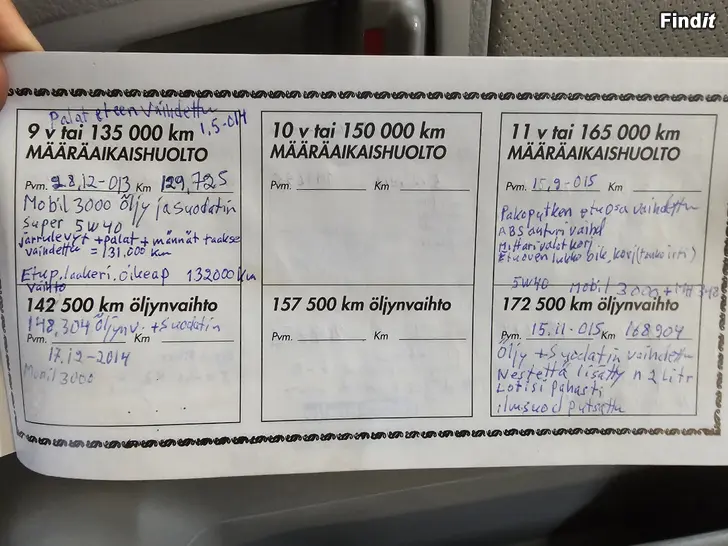 Findit
Palat eteen vaihdettu
1,5-014
9 v tai 135 000 km
MÄÄRÄAIKAISHUOLTO
Pvm. 28,12-013 Km 129,725
Mobil 3000 öljy ja suodatin
super 5W40
jarrulevyt +palat + männät taakse
vaihdettu = 131.000 km
Etup.laakeri.oikeap 132000 km
vaihto
142 500 km öljynvaihto
148,304 öljynv. + suodatin
Pvm. Km
17.12-2014
Mobil 3000
10 v tai 150 000 km
MÄÄRÄAIKAISHUOLTO
Pvm. Km
157 500 km öljynvaihto
Pvm. Km
11 v tai 165 000 km
MÄÄRÄAIKAISHUOLTO
Pvm. 15,9-015 Km
Pakoputken etuosa vaihdettu
ABS anturi vaihd
Mittarivalot korj
Etuoven lukko oik, korj
5W40 Mobil 3000
172 500 km öljynvaihto
Pvm. 15.11-015 Km 168904
Öljy + Suodatin vaihdettu
Nestettä lisätty n 2 Litr
Lotisi pahasti
ilmsuod putsattu